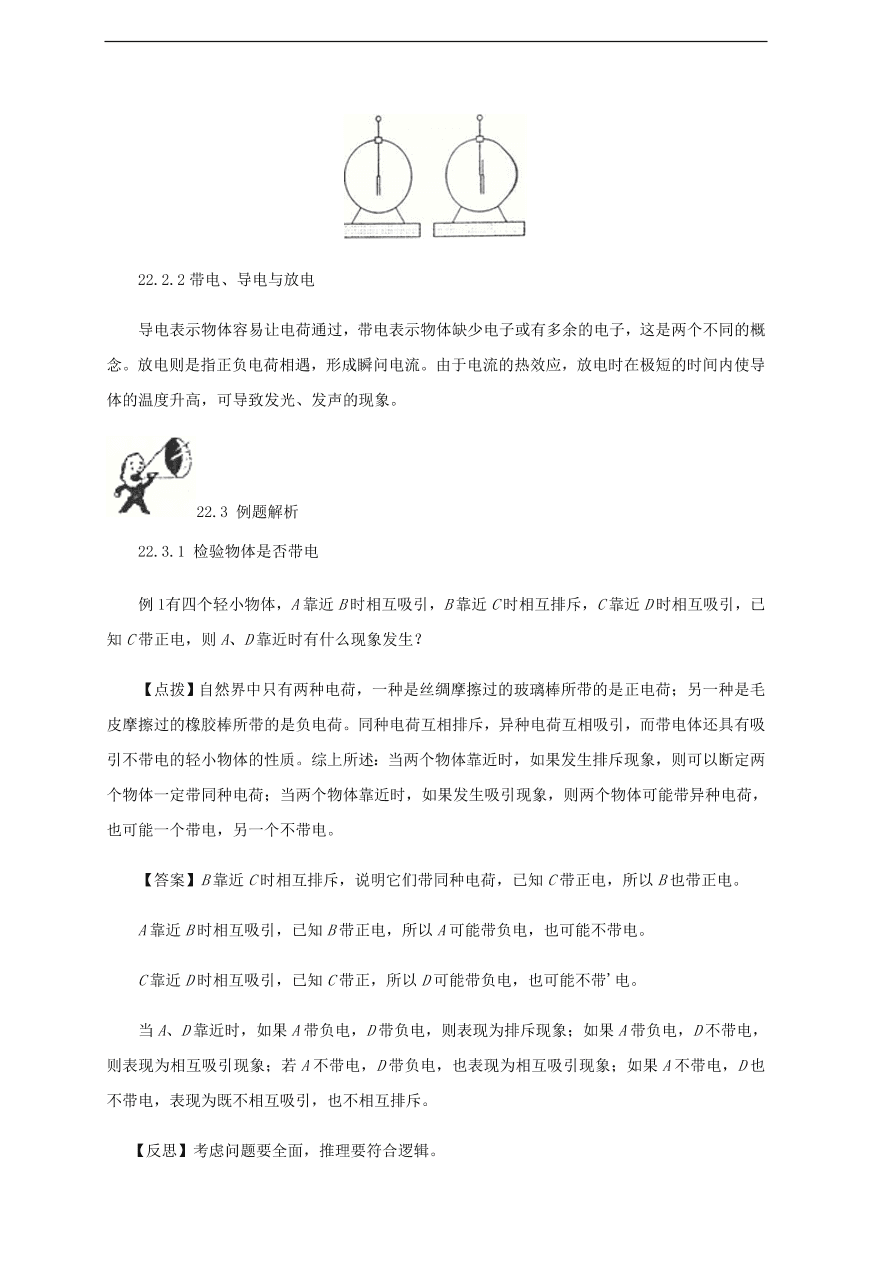 22.2.2 带电、导电与放电
导电表示物体容易让电荷通过，带电表示物体缺少电子或有多余的电子，这是两个不同的概
念。放电则是指正负电荷相遇，形成瞬问电流。由于电流的热效应，放电时在极短的时间内使导
体的温度升高，可导致发光、发声的现象。
22.3 例题解析
22.3.1 检验物体是否带电
例 1有四个轻小物体，A 靠近 B 时相互吸引，B 靠近 C 时相互排斥，C 靠近 D 时相互吸引，已
知 C 带正电，则 A、D 靠近时有什么现象发生？
【点拨】自然界中只有两种电荷，一种是丝绸摩擦过的玻璃棒所带的是正电荷；另一种是毛
皮摩擦过的橡胶棒所带的是负电荷。同种电荷互相排斥，异种电荷互相吸引，而带电体还具有吸
引不带电的轻小物体的性质。综上所述：当两个物体靠近时，如果发生排斥现象，则可以断定两
个物体一定带同种电荷；当两个物体靠近时，如果发生吸引现象，则两个物体可能带异种电荷，
也可能一个带电，另一个不带电。
【答案】B 靠近 C 时相互排斥，说明它们带同种电荷，已知 C 带正电，所以 B 也带正电。
A 靠近 B 时相互吸引，已知 B 带正电，所以 A 可能带负电，也可能不带电。
C 靠近 D 时相互吸引，已知 C 带正，所以 D 可能带负电，也可能不带'电。
当 A、D 靠近时，如果 A 带负电，D 带负电，则表现为排斥现象；如果 A 带负电，D 不带电，
则表现为相互吸引现象；若 A 不带电，D 带负电，也表现为相互吸引现象；如果 A 不带电，D 也
不带电，表现为既不相互吸引，也不相互排斥。
【反思】考虑问题要全面，推理要符合逻辑。